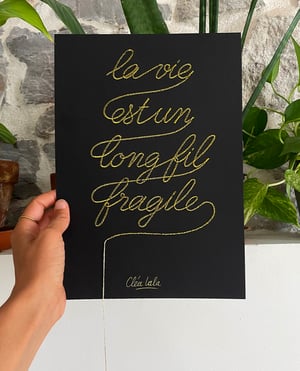 la vie
est un
long fil
fragile
Cléa Lala